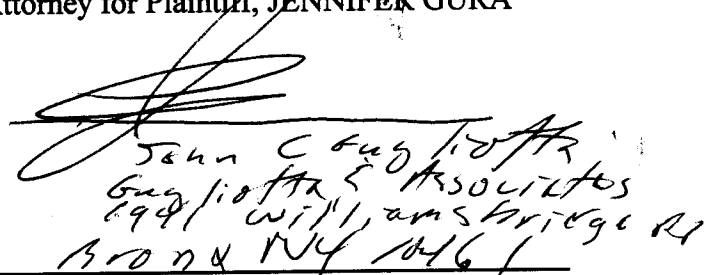 Attorney for Plaintiff, JENNIFER GURA
John C Gugliotta
Gugliotta & Associates
1941 Williamsbridge Rd
Bronx NY 10461